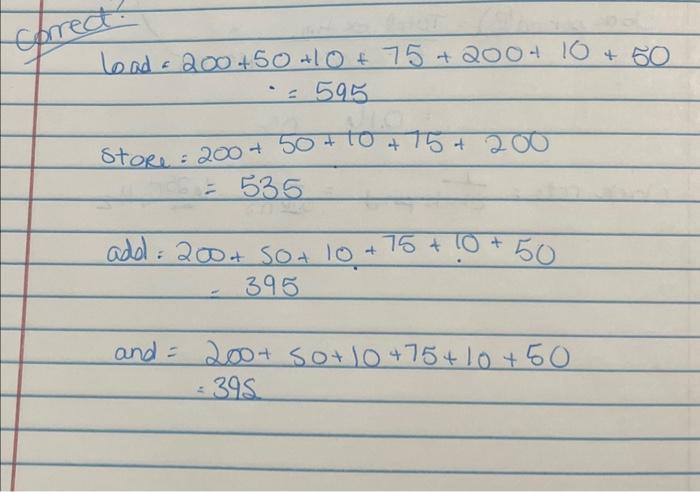 correct:
load = 200+50+10 + 75 + 200+ 10 + 50
= 595
store = 200+ 50+10 +75+ 200
= 535
add = 200+ 50+ 10 +75 + 10 + 50
= 395
and = 200+ 50+10 +75+10 +50
= 395